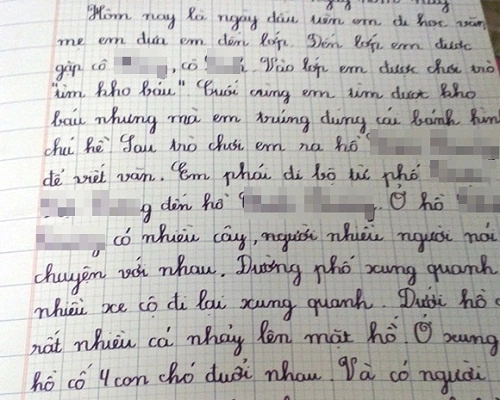 Hôm nay là ngày đầu tiên em đi học văn
mẹ em đưa em đến lớp. Đến lớp em được
gặp cô, cô. Vào lớp em được chơi trò
"tìm kho báu" Cuối cùng em tìm được kho
báu nhưng mà em trúng dung cái bánh hìn
chú hề Sau trò chơi em ra hồ
để viết văn. Em phải đi bộ từ phố
g đến hồ. Ở hồ
có nhiều cây, người nhiều người nói
chuyện với nhau. Đường phố xung quanh
nhiều xe cộ đi lại xung quanh. Dưới hồ c
rất nhiều cá nhảy lên mặt hồ Ở xung
hồ cố 4 con chó đuổi nhau. Và có người